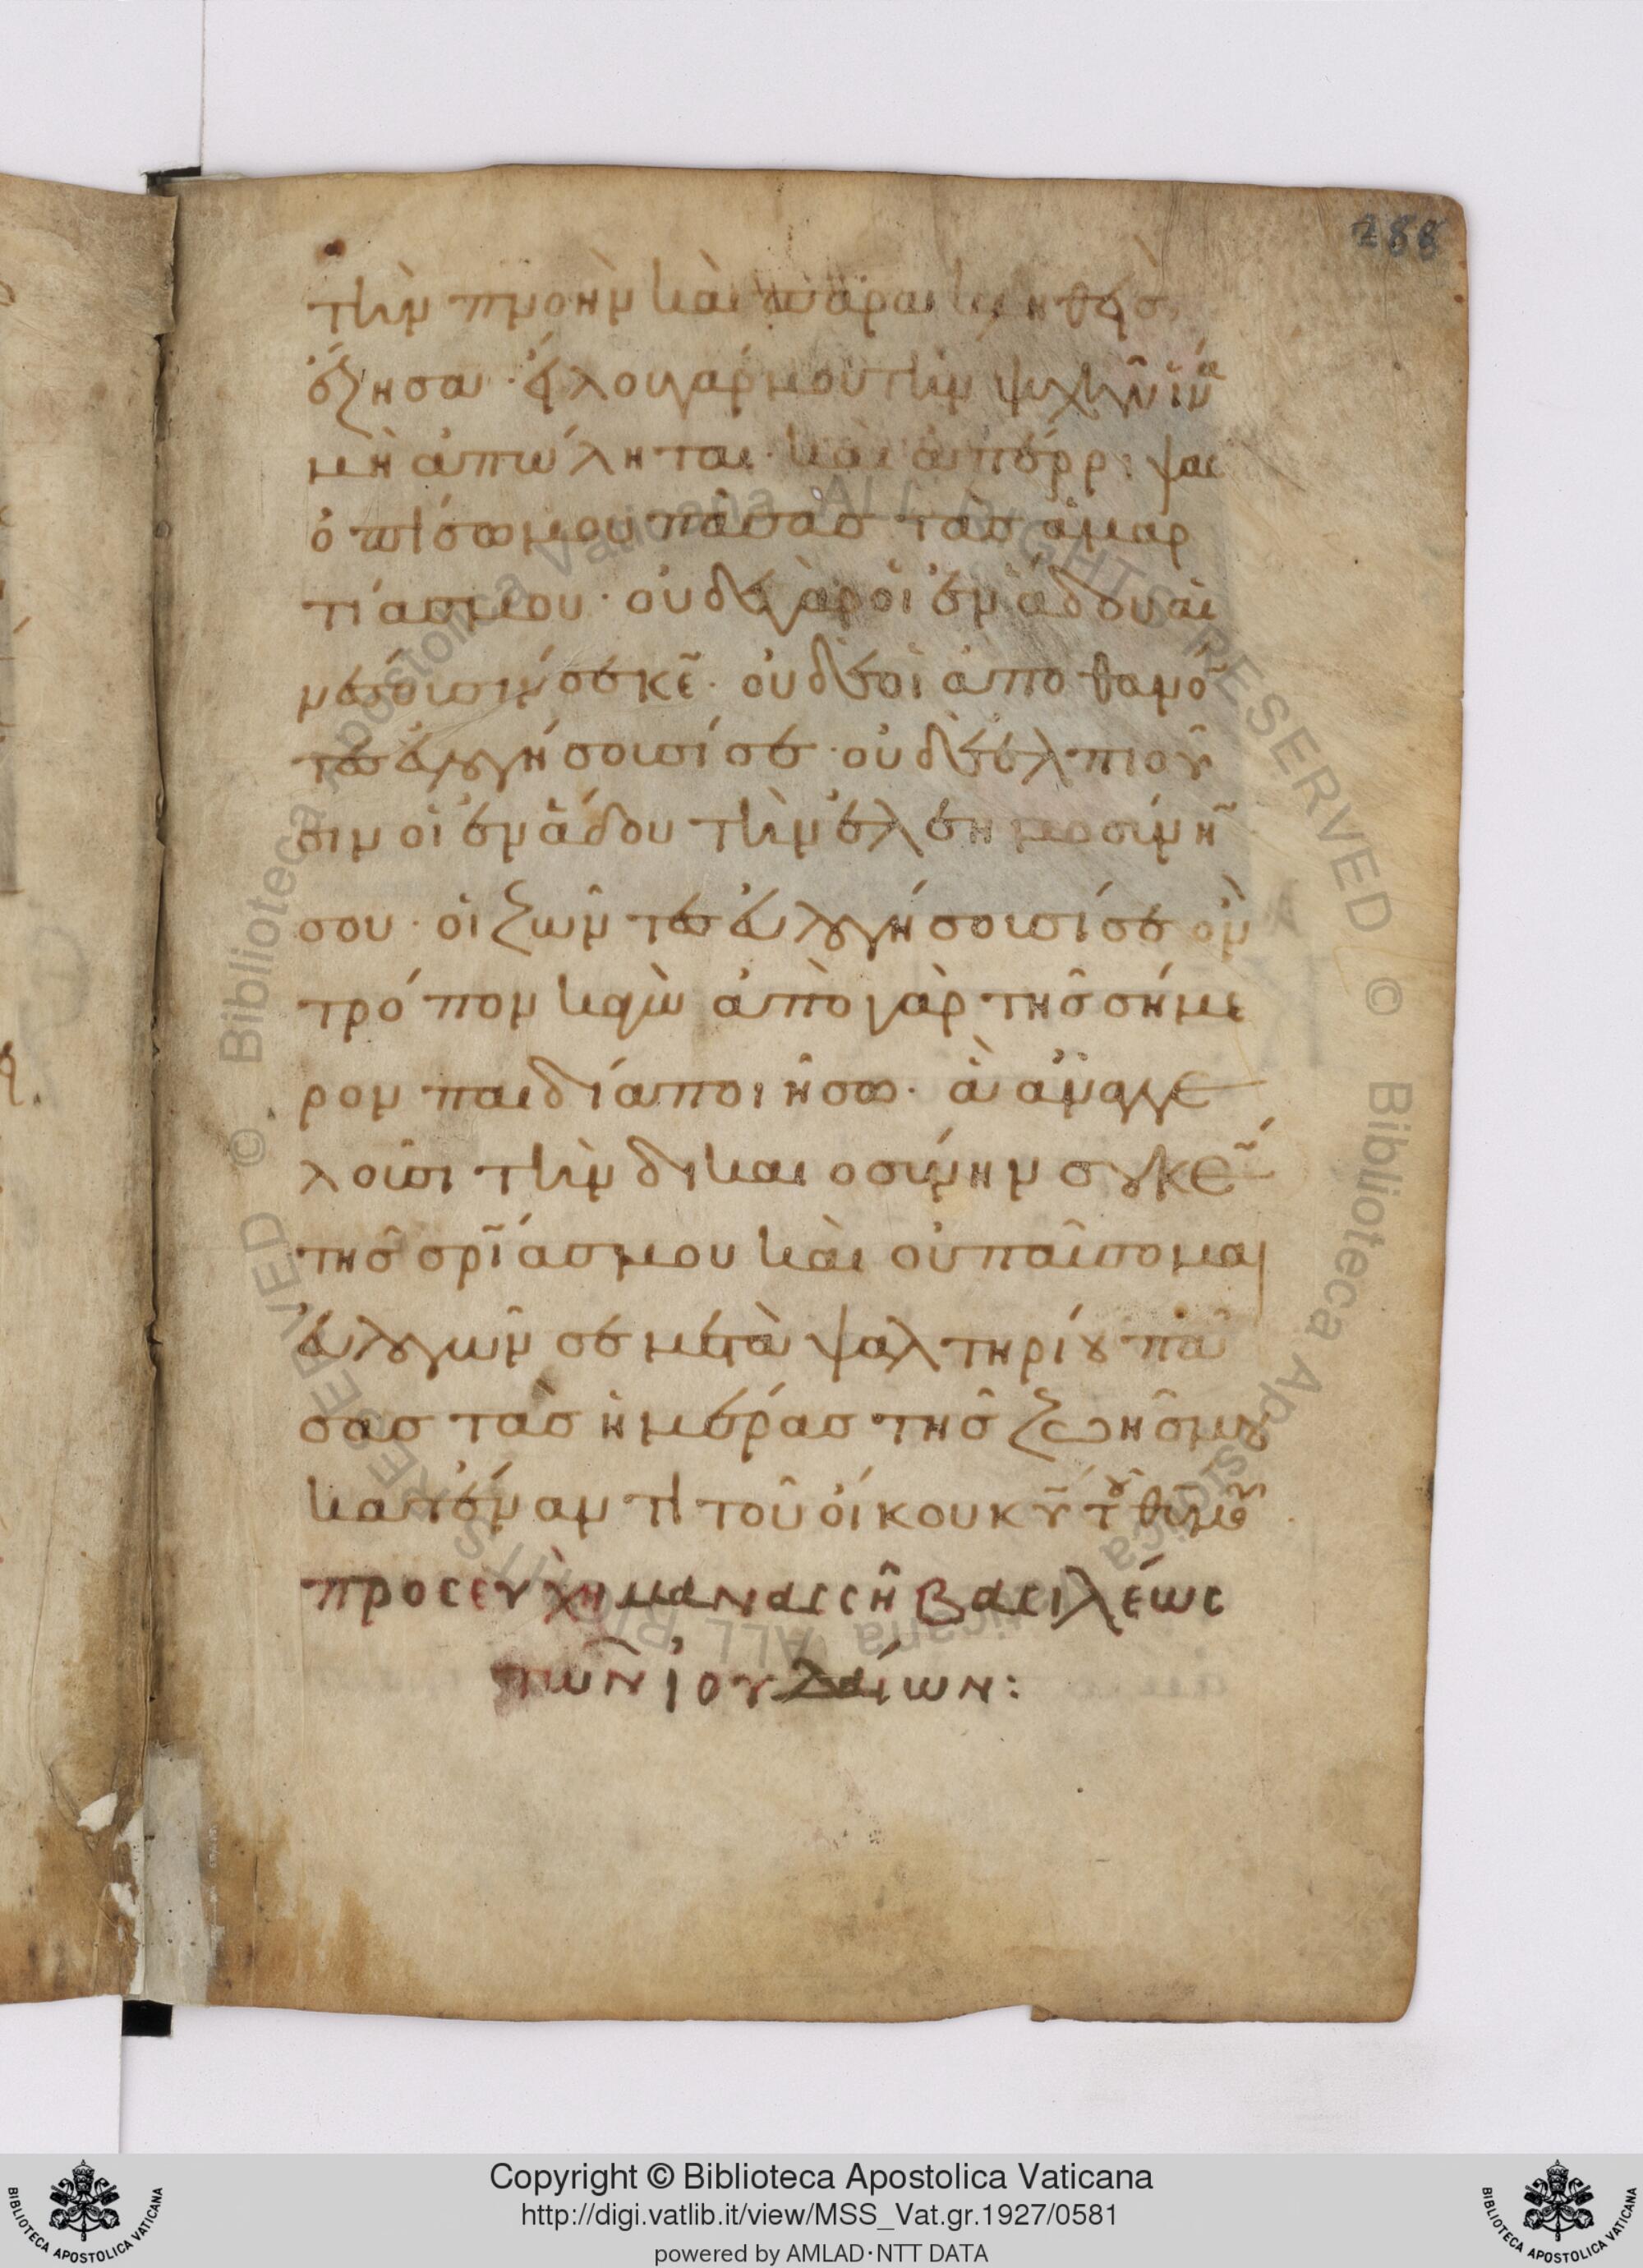 288
τὴν πνοὴν καὶ παρακληθεὶς
ἔζησα· εἵλου γάρ μου τὴν ψυχὴν ἵνα
μὴ ἀπώληται· καὶ ἀπέρριψας
ὀπίσω μου πάσας τὰς ἁμαρ
τίας μου· οὐδὲ γὰρ οἱ ἐν ἅδου αἰ
νέσουσίν σε κε̃· οὐδὲ οἱ ἀποθανό
τες εὐλογήσουσί σε· οὐδὲ ἐλπιοῦ
σιν οἱ ἐν ἅδου τὴν ἐλεημοσύνη
σου· οἱ ζῶντες εὐλογήσουσί σε ὃν
τρόπον κἀγὼ ἀπὸ γὰρ τῆς σήμε
ρον παιδία ποιήσω· ἃ ἀναγγε
λοῦσι τὴν δικαιοσύνην σου κε̃
τῆς σρ̃ίας μου καὶ οὐ παύσομαι
εὐλογῶν σε μετὰ ψαλτηρίου πά
σας τὰς ἡμέρας τῆς ζωῆς μου
κατέναντι τοῦ οἴκου κυ̃ τοῦ θυ̃ μου
προσευχὴ μανασσῆ βασιλέως
τῶν ἰουδαίων:
Copyright © Biblioteca Apostolica Vaticana
http://digi.vatlib.it/view/MSS_Vat.gr.1927/0581
powered by AMLAD·NTT DATA
BIBLIOTECA APOSTOLICA VATICANA
BIBLIOTECA APOSTOLICA VATICANA